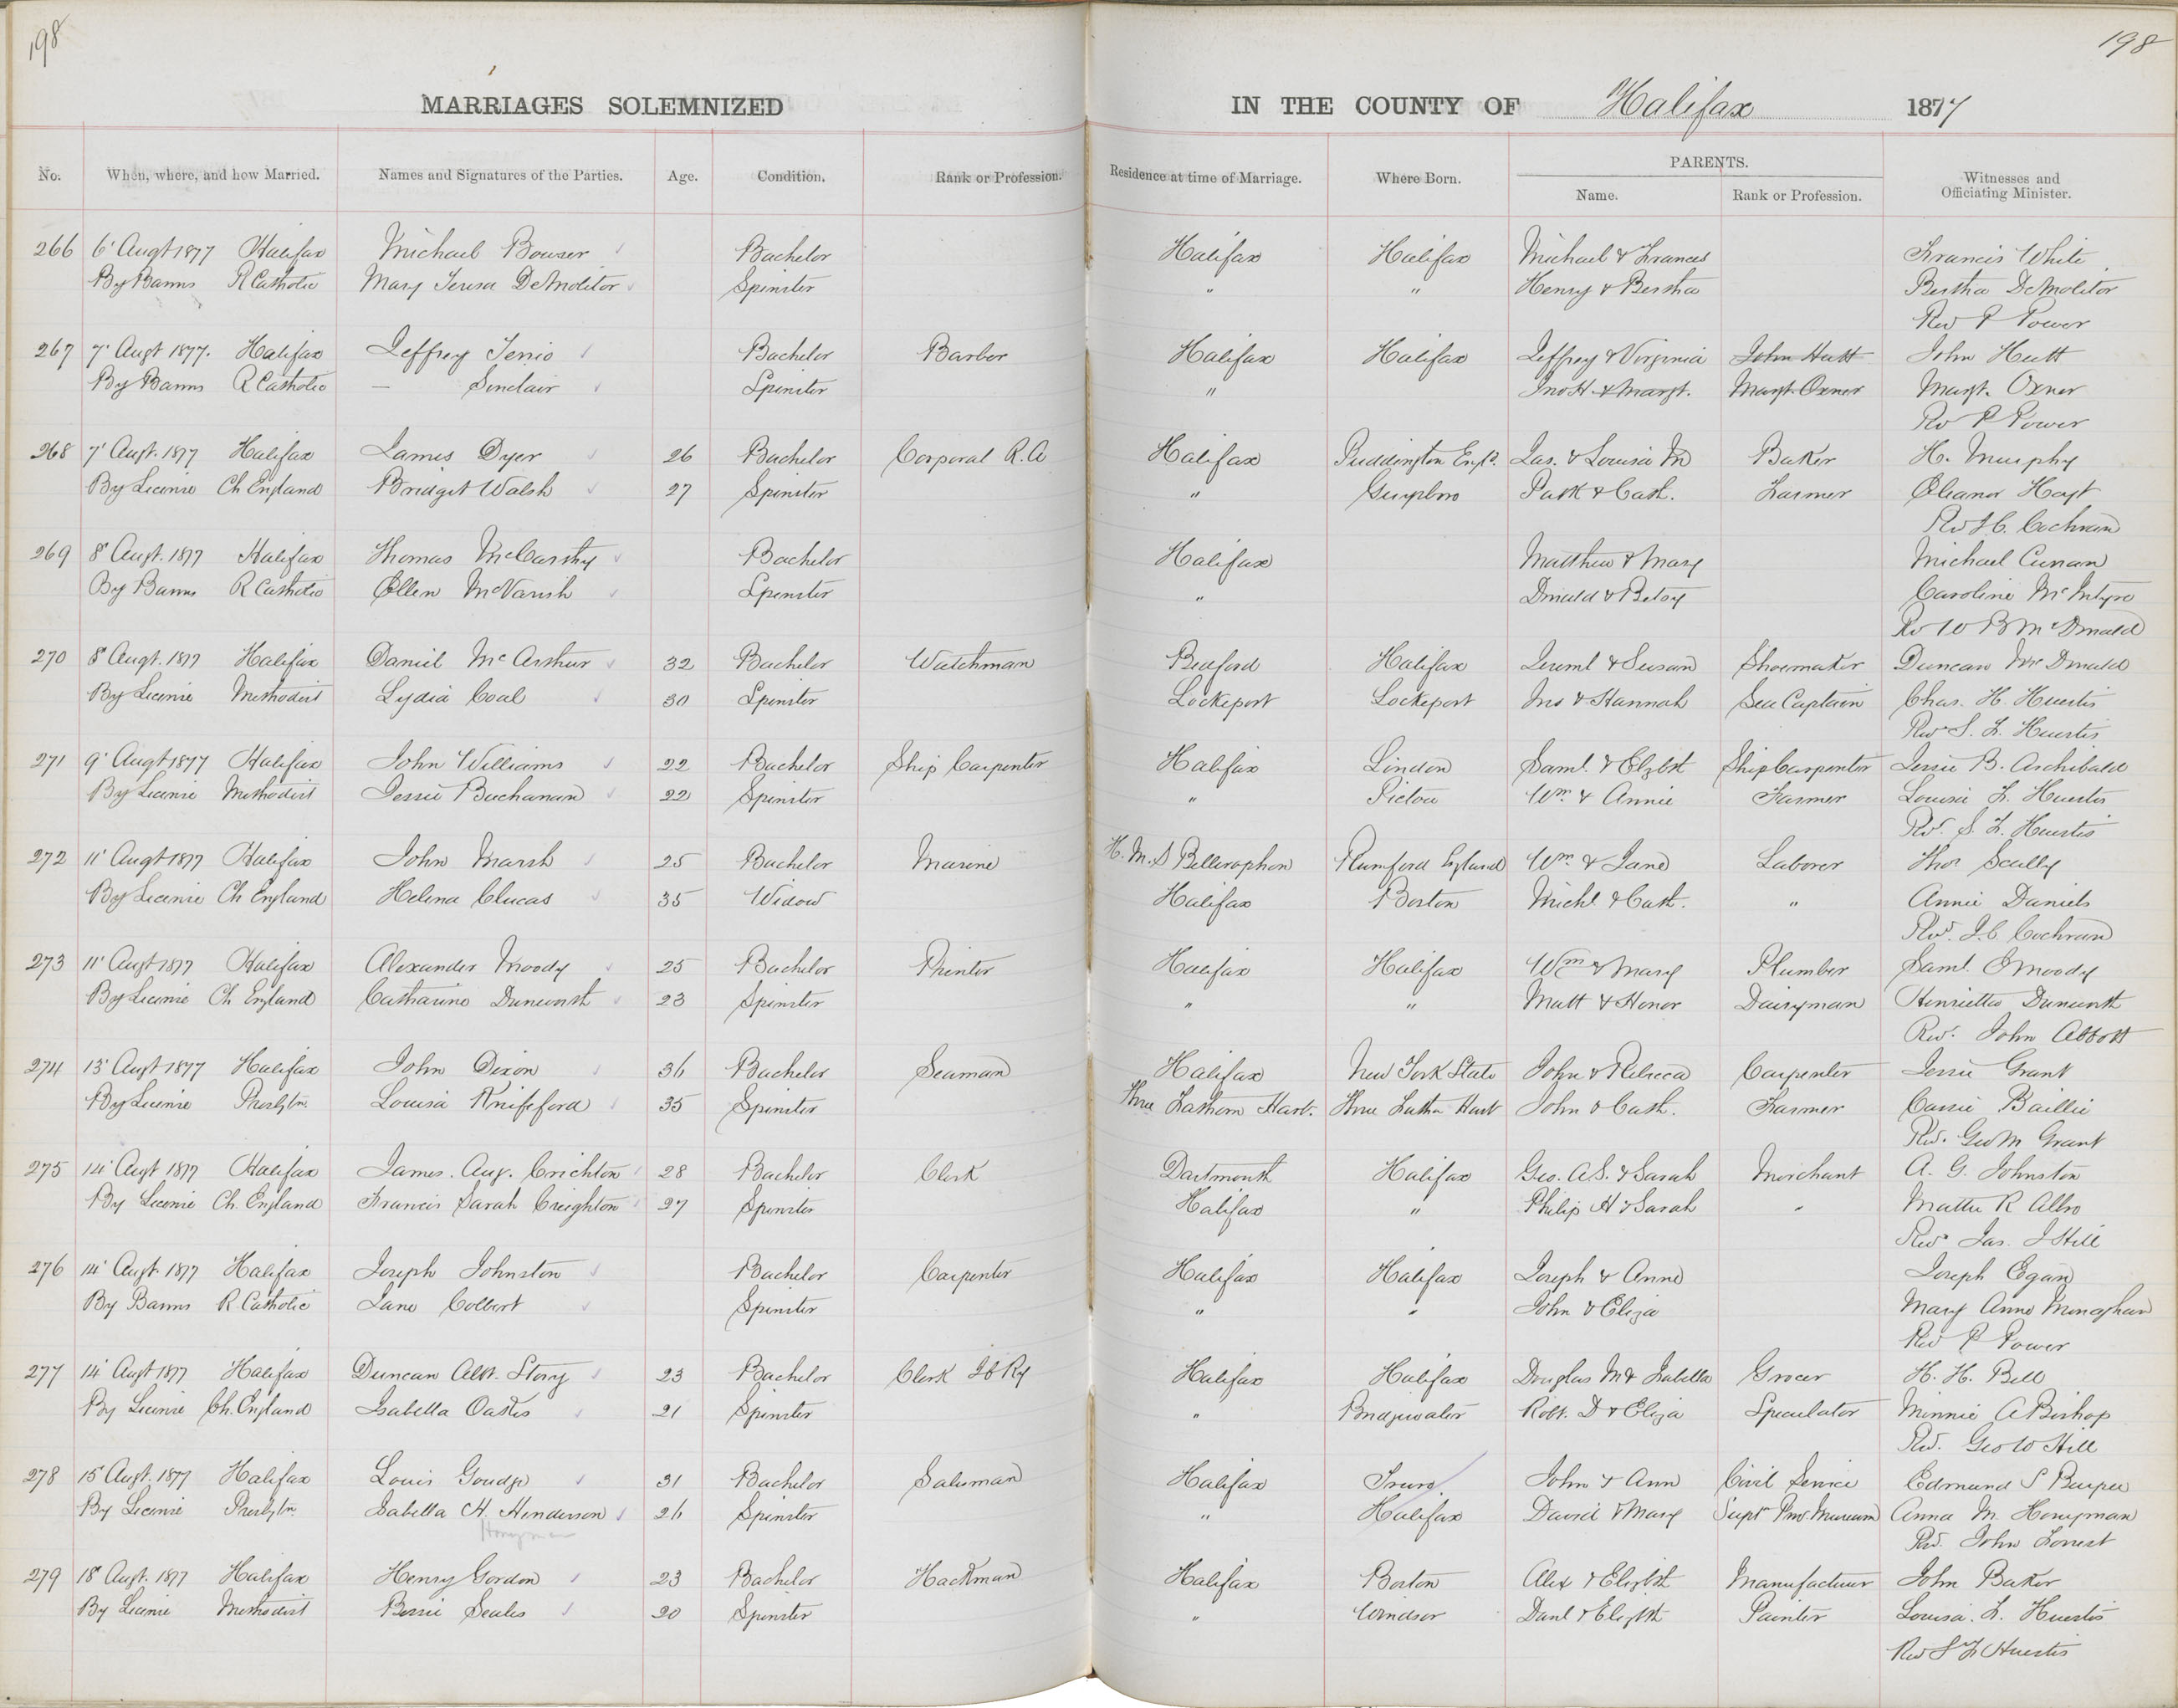 198
198
MARRIAGES SOLEMNIZED IN THE COUNTY OF Halifax 1877
No. When, where, and how Married. Names and Signatures of the Parties. Age. Condition. Rank or Profession. Residence at time of Marriage. Where Born. PARENTS. Name. Rank or Profession. Witnesses and Officiating Minister.
266 6' Augt 1877 Halifax Michael Bowser Bachelor Halifax Halifax Michael & Frances Francis White
By Banns R Catholic Mary Teresa DeMolitor Spinster " " Henry & Bertha Bertha DeMolitor
Rev P Power
267 7' Augt 1877. Halifax Jeffrey Terrio Bachelor Barber Halifax Halifax Jeffrey & Virginia John Hutt John Hutt
By Banns R Catholic — Sinclair Spinster " Jno H & Margt. Margt. Oxner Margt. Oxner
Rev P Power
268 7' Augt. 1877 Halifax James Dyer 26 Bachelor Corporal R.A Halifax Puddington Engd. Jas. & Louisa M Baker H. Murphy
By License Ch England Bridget Walsh 27 Spinster " Guysboro Patk & Cath. Farmer Eleanor Hoyt
Rev J C. Cochran
269 8' Augt. 1877 Halifax Thomas McCarthy Bachelor Halifax Matthew & Mary Michael Curran
By Banns R Catholic Ellen McVarish Spinster " Donald & Betsy Caroline McIntyre
Rev W B McDonald
270 8' Augt. 1877 Halifax Daniel McArthur 32 Bachelor Watchman Bedford Halifax Jereml & Susan Shoemaker Duncan McDonald
By License Methodist Lydia Coal 30 Spinster Lockeport Lockeport Jno & Hannah Sea Captain Chas. H. Huestis
Rev S. F. Huestis
271 9' Augt 1877 Halifax John Williams 22 Bachelor Ship Carpenter Halifax London Saml. & Elzbt Ship Carpenter Jessie B. Archibald
By License Methodist Jessie Buchanan 22 Spinster " Pictou Wm. & Annie Farmer Louisa F. Huestis
Rev. S. F. Huestis
272 11' Augt 1877 Halifax John Marsh 25 Bachelor Marine H.M.S Bellerophon Rumford England Wm. & Jane Laborer Thos Scully
By License Ch England Helena Clucas 35 Widow Halifax Boston Michl & Cath. " Annie Daniels
Rev. J.C. Cochran
273 11' Augt 1877 Halifax Alexander Moody 25 Bachelor Printer Halifax Halifax Wm & Mary Plumber Saml. E Moody
By License Ch England Catharine Dunworth 23 Spinster " " Matt & Honor Dairyman Henrietta Dunworth
Rev. John Abbott
274 13' Augt 1877 Halifax John Dixon 36 Bachelor Seaman Halifax New York State John & Rebecca Carpenter Jessie Grant
By License Presbytn. Louisa Knifeford 35 Spinster Three Fathom Harb. Three Fathm Harb John & Cath. Farmer Cassie Baillie
Rev. Geo M Grant
275 14' Augt 1877 Halifax James. Aug. Crichton 28 Bachelor Clerk Dartmouth Halifax Geo. A.S. & Sarah Merchant A. G. Johnston
By License Ch. England Francis Sarah Creighton 27 Spinster Halifax " Philip H & Sarah " Mattie R Allro
Rev Jas. J Hill
276 14' Augt. 1877 Halifax Joseph Johnston Bachelor Carpenter Halifax Halifax Joseph & Anne Joseph Egan
By Banns R. Catholic Jane Colbert Spinster " " John & Eliza Mary Anne Monaghan
Rev P Power
277 14' Augt 1877 Halifax Duncan Albt. Story 23 Bachelor Clerk I C Ry Halifax Halifax Douglas M & Isabella Grocer H. H. Bell
By License Ch. England Isabella Oakes 21 Spinster " Bridgewater Robt. D & Eliza Speculator Minnie A Bishop
Rev. Geo W Hill
278 15' Augt. 1877 Halifax Louis Goudge 31 Bachelor Salesman Halifax Truro John & Ann Civil Service Edmund S Burpee
By License Presbytn. Isabella H. Henderson 26 Spinster " Halifax David & Mary Supt Prov. Museum Anna M. Honeyman
Honeyman
Rev. John Forrest
279 18' Augt. 1877 Halifax Henry Gordon 23 Bachelor Hackman Halifax Boston Alex & Elizbth Manufacturer John Baker
By License Methodist Bessie Scales 20 Spinster " Windsor Danl & Elizbth Painter Louisa. F. Huestis
Rev S F Huestis